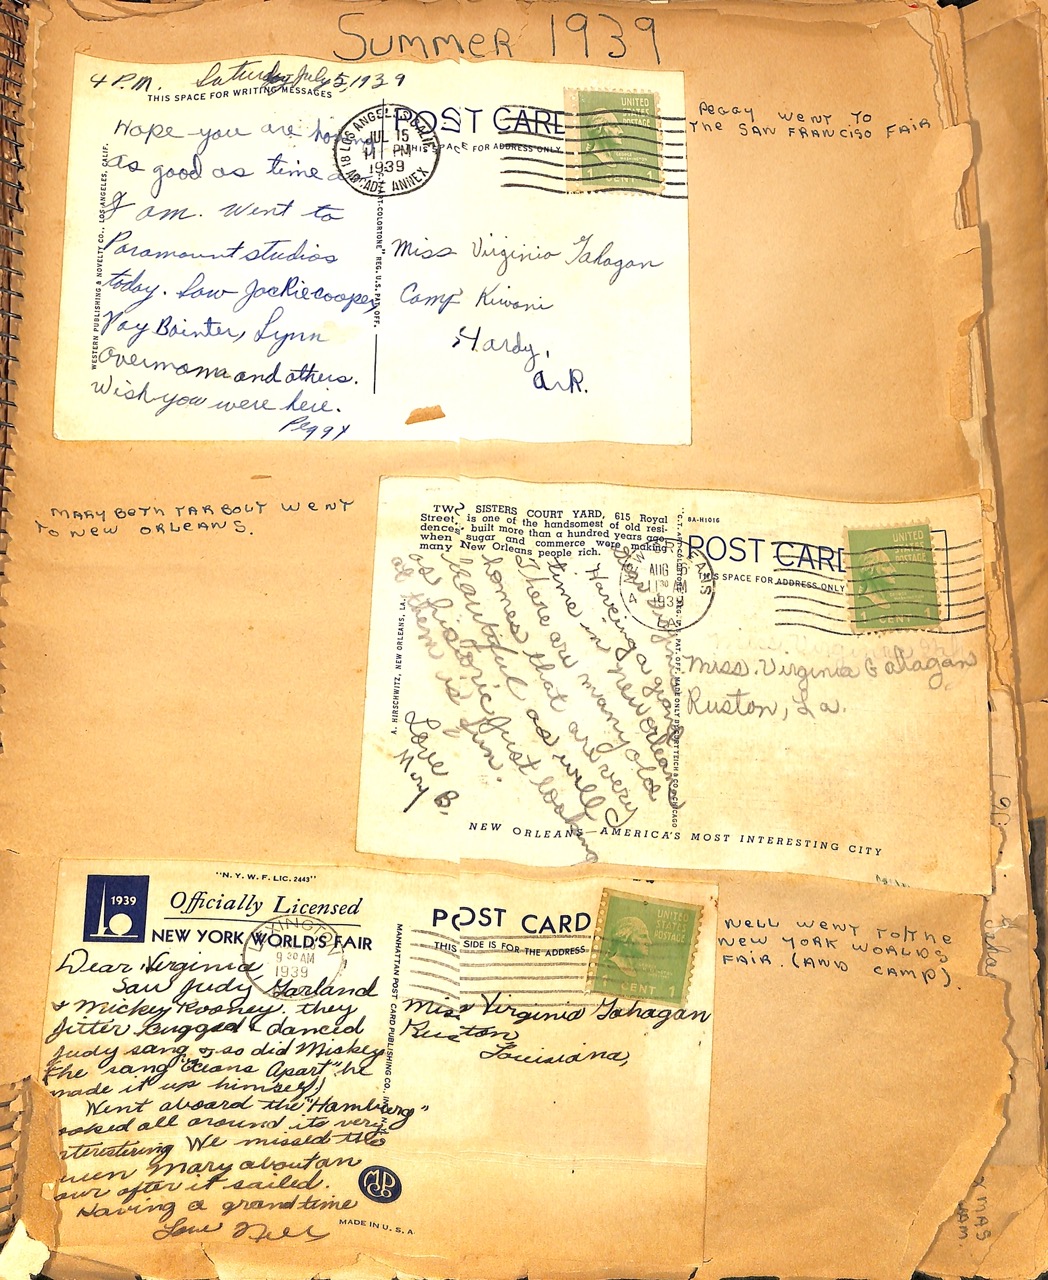 Summer 1939
4 P.M. Saturday July 15, 1939
THIS SPACE FOR WRITING MESSAGES
POST CARD
THIS SPACE FOR ADDRESS ONLY
LOS ANGELES, CALIF.
JUL 15
11 PM
1939
ARCADE ANNEX
UNITED
STATES
POSTAGE
1 CENT 1
Hope you are having
as good as time as
I am. Went to
Paramount studios
today. Saw Jackie cooper,
Fay Bainter, Lynn
Overmann and others.
Wish you were here.
Peggy
WESTERN PUBLISHING & NOVELTY CO., LOS ANGELES, CALIF.
ART-COLORTONE" REG. U.S. PAT. OFF.
Miss Virginia Gahagan
Camp Kiwani
Hardy,
Ark.
PEGGY WENT TO
THE SAN FRANCISO FAIR
MARY BETH TARBOLT WENT
TO NEW ORLEANS.
TWO SISTERS COURT YARD, 615 Royal
Street, is one of the handsomest of old resi-
dences, built more than a hundred years ago
when sugar and commerce were making
many New Orleans people rich.
8A-H1016
POST CARD
THIS SPACE FOR ADDRESS ONLY
AUG 6
11 30 AM
1939
LA.
UNITED
STATES
POSTAGE
1 CENT 1
Dear Virginia
Haveing a grand
time in new orleans
There are many old
homes that are very
beautiful as will
as historic Just looking
at them is fun.
Love
Mary B.
A. HIRSCHWITZ, NEW ORLEANS, LA.
Miss. Virginia Gahagan
Ruston, La.
NEW ORLEANS—AMERICA'S MOST INTERESTING CITY
"N.Y.W.F. LIC. 2443"
1939
Officially Licensed
NEW YORK WORLD'S FAIR
POST CARD
THIS SIDE IS FOR THE ADDRESS
9 30 AM
1939
UNITED
STATES
POSTAGE
1 CENT 1
Dear Virginia
Saw Judy Garland
& Mickey Rooney. they
jitter bugged & danced
Judy sang & so did Mickey
(he sang "Oceans Apart" he
made it up himself)
Went aboard the "Hamburg"
ooked all around its very
nteresting We missed the
ueen Mary about an
our after it sailed.
Having a grand time
Love Nell
MANHATTAN POST CARD PUBLISHING CO., INC.
MADE IN U.S.A.
Miss Virginia Gahagan
Ruston
Louisiana,
NELL WENT TO THE
NEW YORK WORLDS
FAIR. (AND CAMP).
XMAS